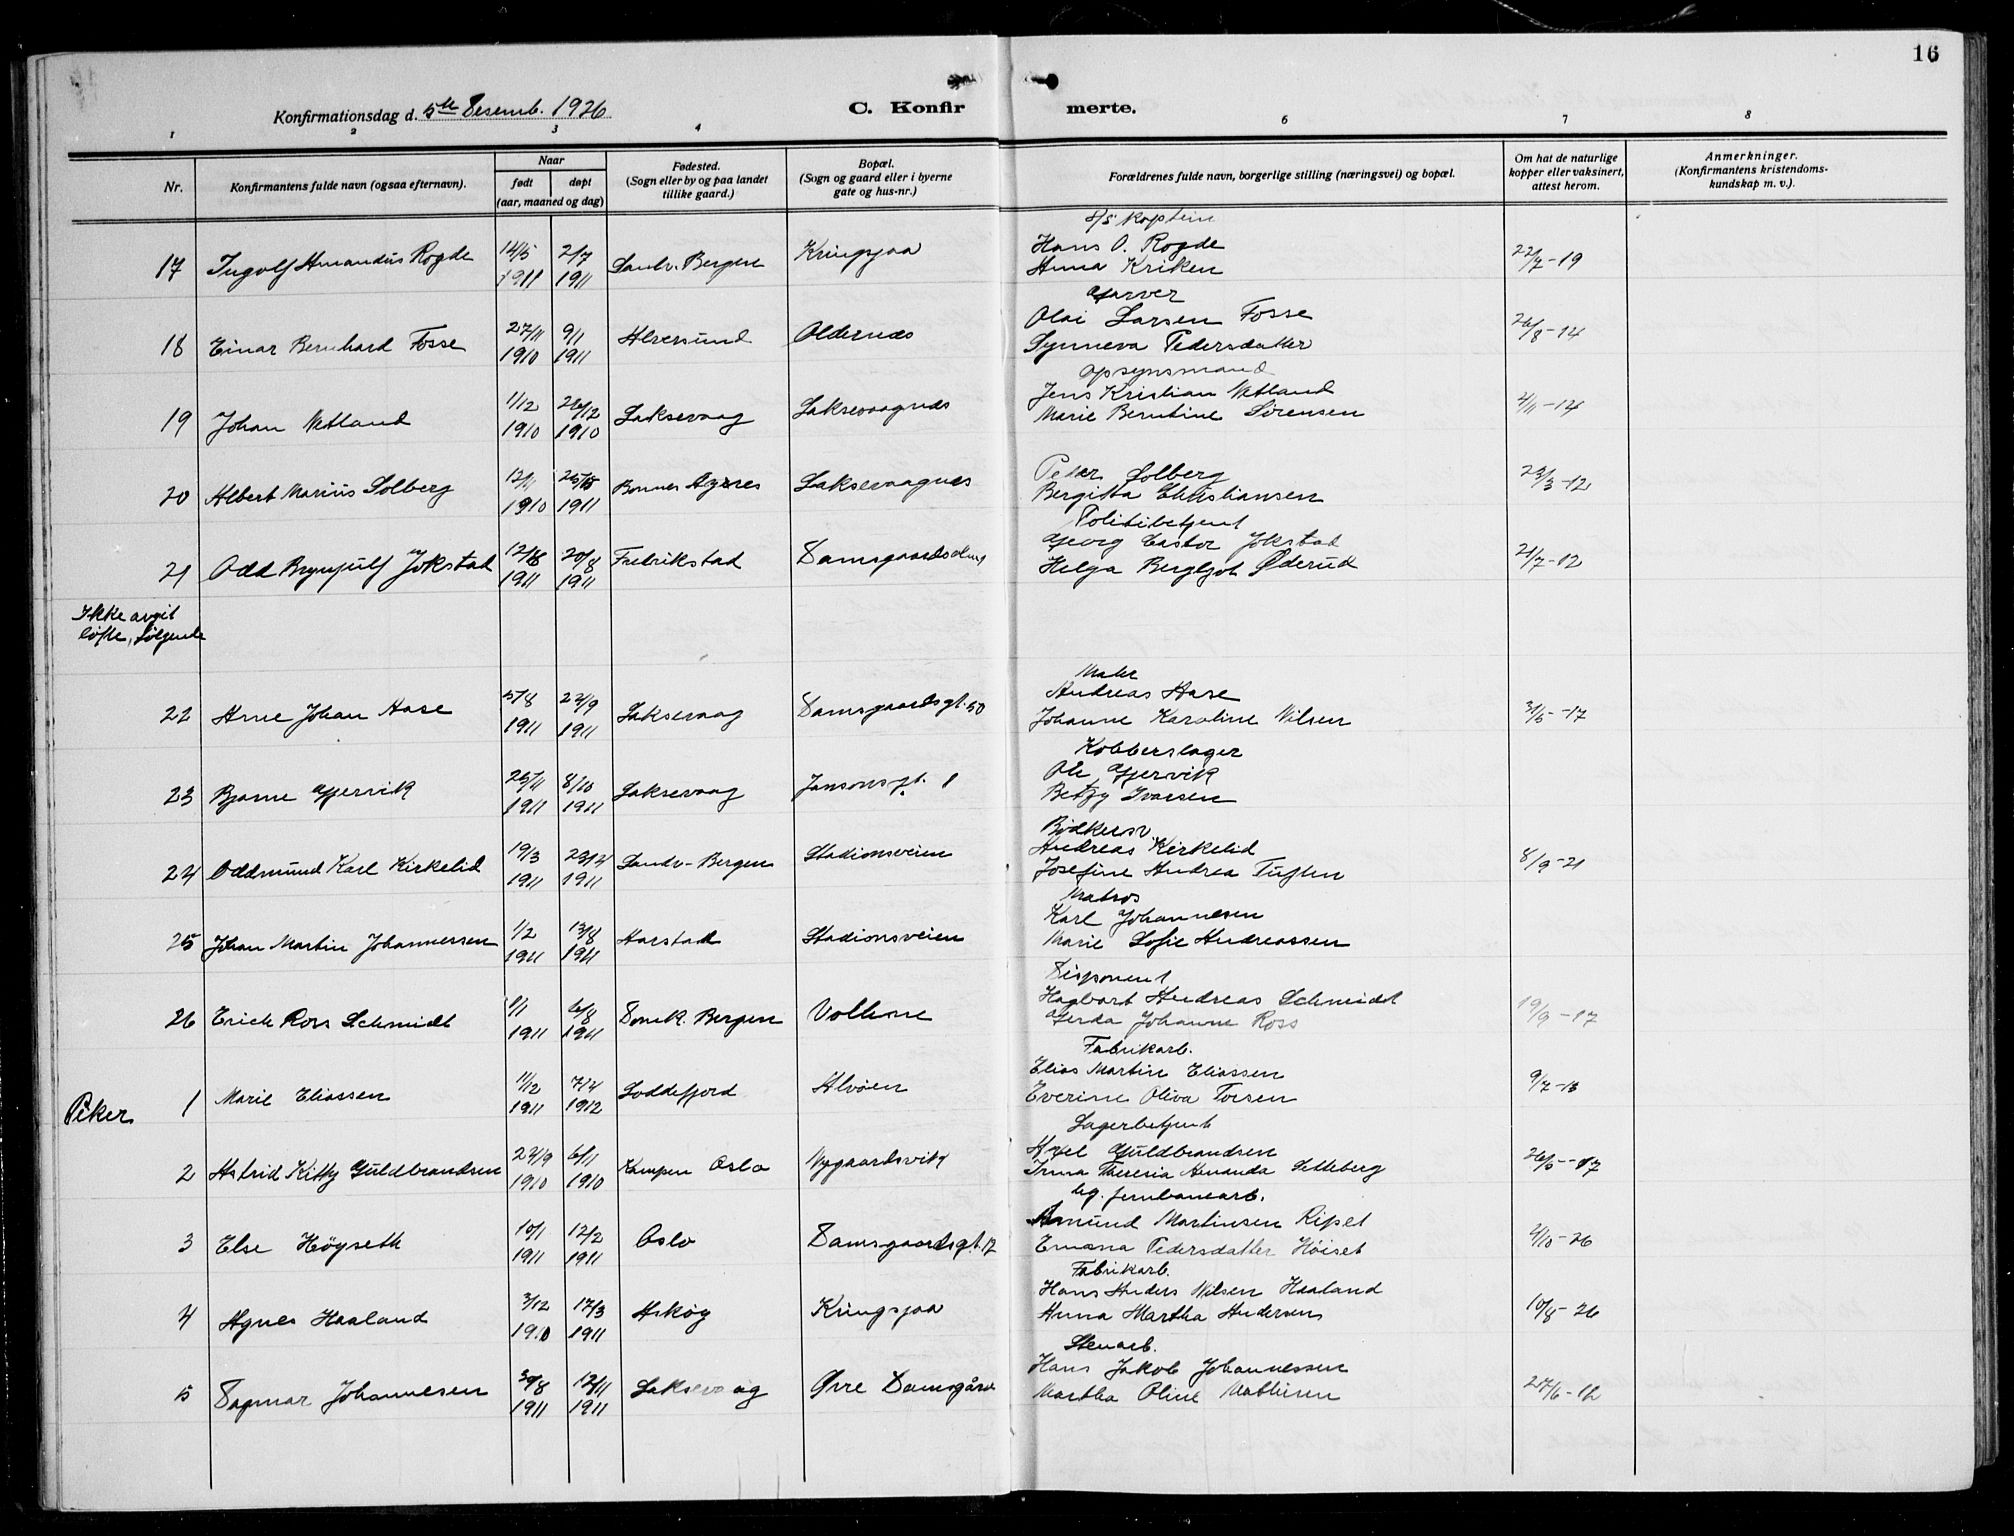 16
Konfirmationsdag d. 5te Desemb. 1926
C. Konfirmerte.
1 2 3 4 6 7 8
Nr.
Konfirmantens fulde navn (ogsaa efternavn).
Naar
født
døpt
(aar, maaned og dag)
Fødested.
(Sogn eller by og paa landet
tillike gaard.)
Bopæl.
(Sogn og gaard eller i byerne
gate og hus-nr.)
Forældrenes fulde navn, borgerlige stilling (næringsvei) og bopæl.
Om hat de naturlige
kopper eller vaksinert,
attest herom.
Anmerkninger.
(Konfirmantens kristendoms-
kundskap m. v.).
d/s kaptein
17 Ingolf Amandus Rogde 14/5 1911 2/7 1911 Sandv. Bergen Kringsjaa Hans O. Rogde
Anna Kriken 22/7-19
Garver
18 Einar Bernhard Fosse 27/11 1910 9/1 1911 Alversund Oldernes Olai Larsen Fosse
Synneva Pedersdatter 26/8-14
Opsynsmand
19 Johan Vetland 1/12 1910 26/12 1910 Laksevaag Laksevaagnes Jens Kristian Vetland
Marie Berntine Sørensen 4/11-14
20 Albert Marius Solberg 1910 1911 Laksevaagnes Peder Solberg
Bergitta Christiansen 23/3-12
Politibetjent
21 Odd Brynjulf Jokstad 1911 20/8 1911 Fredrikstad Georg Castor Jokstad
Helga Bergljot Øderud 21/7-12
Ikke avgit
løfte, følgende
Maler
22 Arne Johan Aase 5/8 1911 22/9 1911 Laksevaag Damsgaardsgt. 50 Andreas Aase
Johanne Karoline Nilsen 31/5-17
Kobberslager
23 Bjarne Gjervik 1911 8/10 1911 Laksevaag Jansonsgt. 1 Ole Gjervik
Betzy Ivarsen
Bødkersv.
24 Oddmund Karl Kirkelid 19/3 1911 23/4 1911 Sandv. Bergen Stadionsveien Andreas Kirkelid
Josefine Andrea 8/9-21
Matros
25 Johan Martin Johannessen 1/2 1911 13/8 1911 Harstad Stadionsveien Karl Johannesen
Marie Sofie Andreassen
Disponent
26 Erich Ross Schmidt 1/1 1911 6/8 1911 Domk. Bergen Vollene Hagbart Andreas Schmidt
Gerda Johanne Ross 19/9-17
Fabrikarb.
Piker 1 Marie Eliassen 11/12 1911 7/4 1912 Loddefjord Alvøen Elias Martin Eliassen
Everine Oliva Toesen 9/7-13
Lagerbetjent
2 Astrid Kitty Guldbrandsen 23/9 1910 6/11 1910 Kampen Oslo Nygaardsvik Axel Guldbrandsen
Irma Theresia Amanda Setteberg 26/5-17
bg. jernbanearb.
3 Else Høyseth 10/1 1911 12/2 1911 Oslo Damsgaardsgt. 12 Amund Martinsen Ripel
Emana Pedersdatter Høiset 2/10-26
Fabrikarb.
4 Agnes Haaland 3/12 1910 17/3 1911 Askøy Kringsjaa Hans Anders Nilsen Haaland
Anna Martha Andersen 10/8-26
Stenarb.
5 Dagmar Johannesen 30/8 1911 12/11 1911 Laksevaag Øvre Damsgård Hans Jakob Johannessen
Martha Oline Mathisen 27/6-12